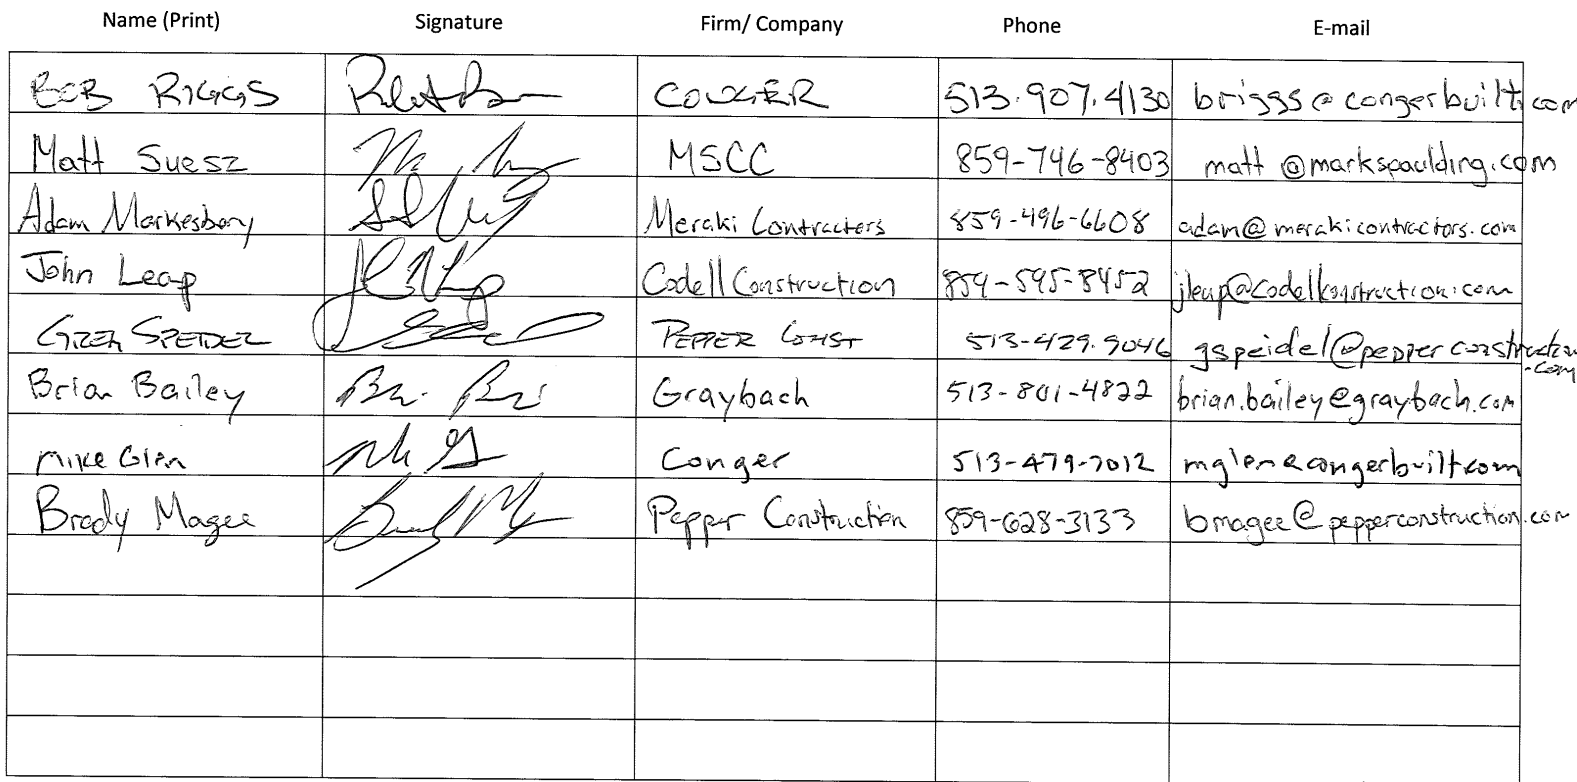 Name (Print) Signature Firm/ Company Phone E-mail
BOB RIGGS CONGER 513.907.4130 briggs@congerbuilt.com
Matt Suesz MSCC 859-746-8403 matt@markspaulding.com
Adam Markesbery Meraki Contractors 859-496-6608 adam@merakicontractors.com
John Leap Codell Construction 859-595-8452 jleap@codellconstruction.com
GREG SPEIDEL PEPPER CONST 513-429.9046 gspeidel@pepperconstruction
.com
Brian Bailey Graybach 513-801-4822 brian.bailey@graybach.com
Mike Glen Conger 513-479-7012 mglen@congerbuilt.com
Brady Magee Pepper Construction 859-628-3133 bmagee@pepperconstruction.com